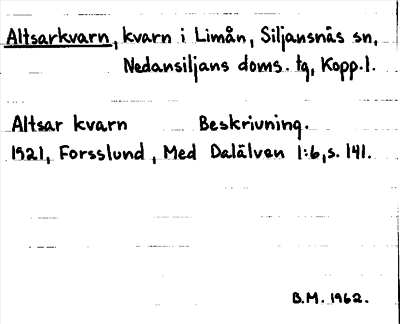 Altsarkvarn, kvarn i Limån, Siljansnäs sn,
Nedansiljans doms. tg, Kopp.l.
Altsar kvarn Beskrivning.
1921, Forsslund, Med Dalälven 1:6, s. 141.
B.M. 1962.